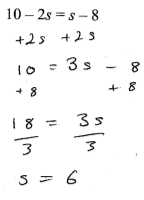 10 − 2s = s − 8
+2s +2s
10 = 3s − 8
+8 +8
18 = 3s
3 3
s = 6